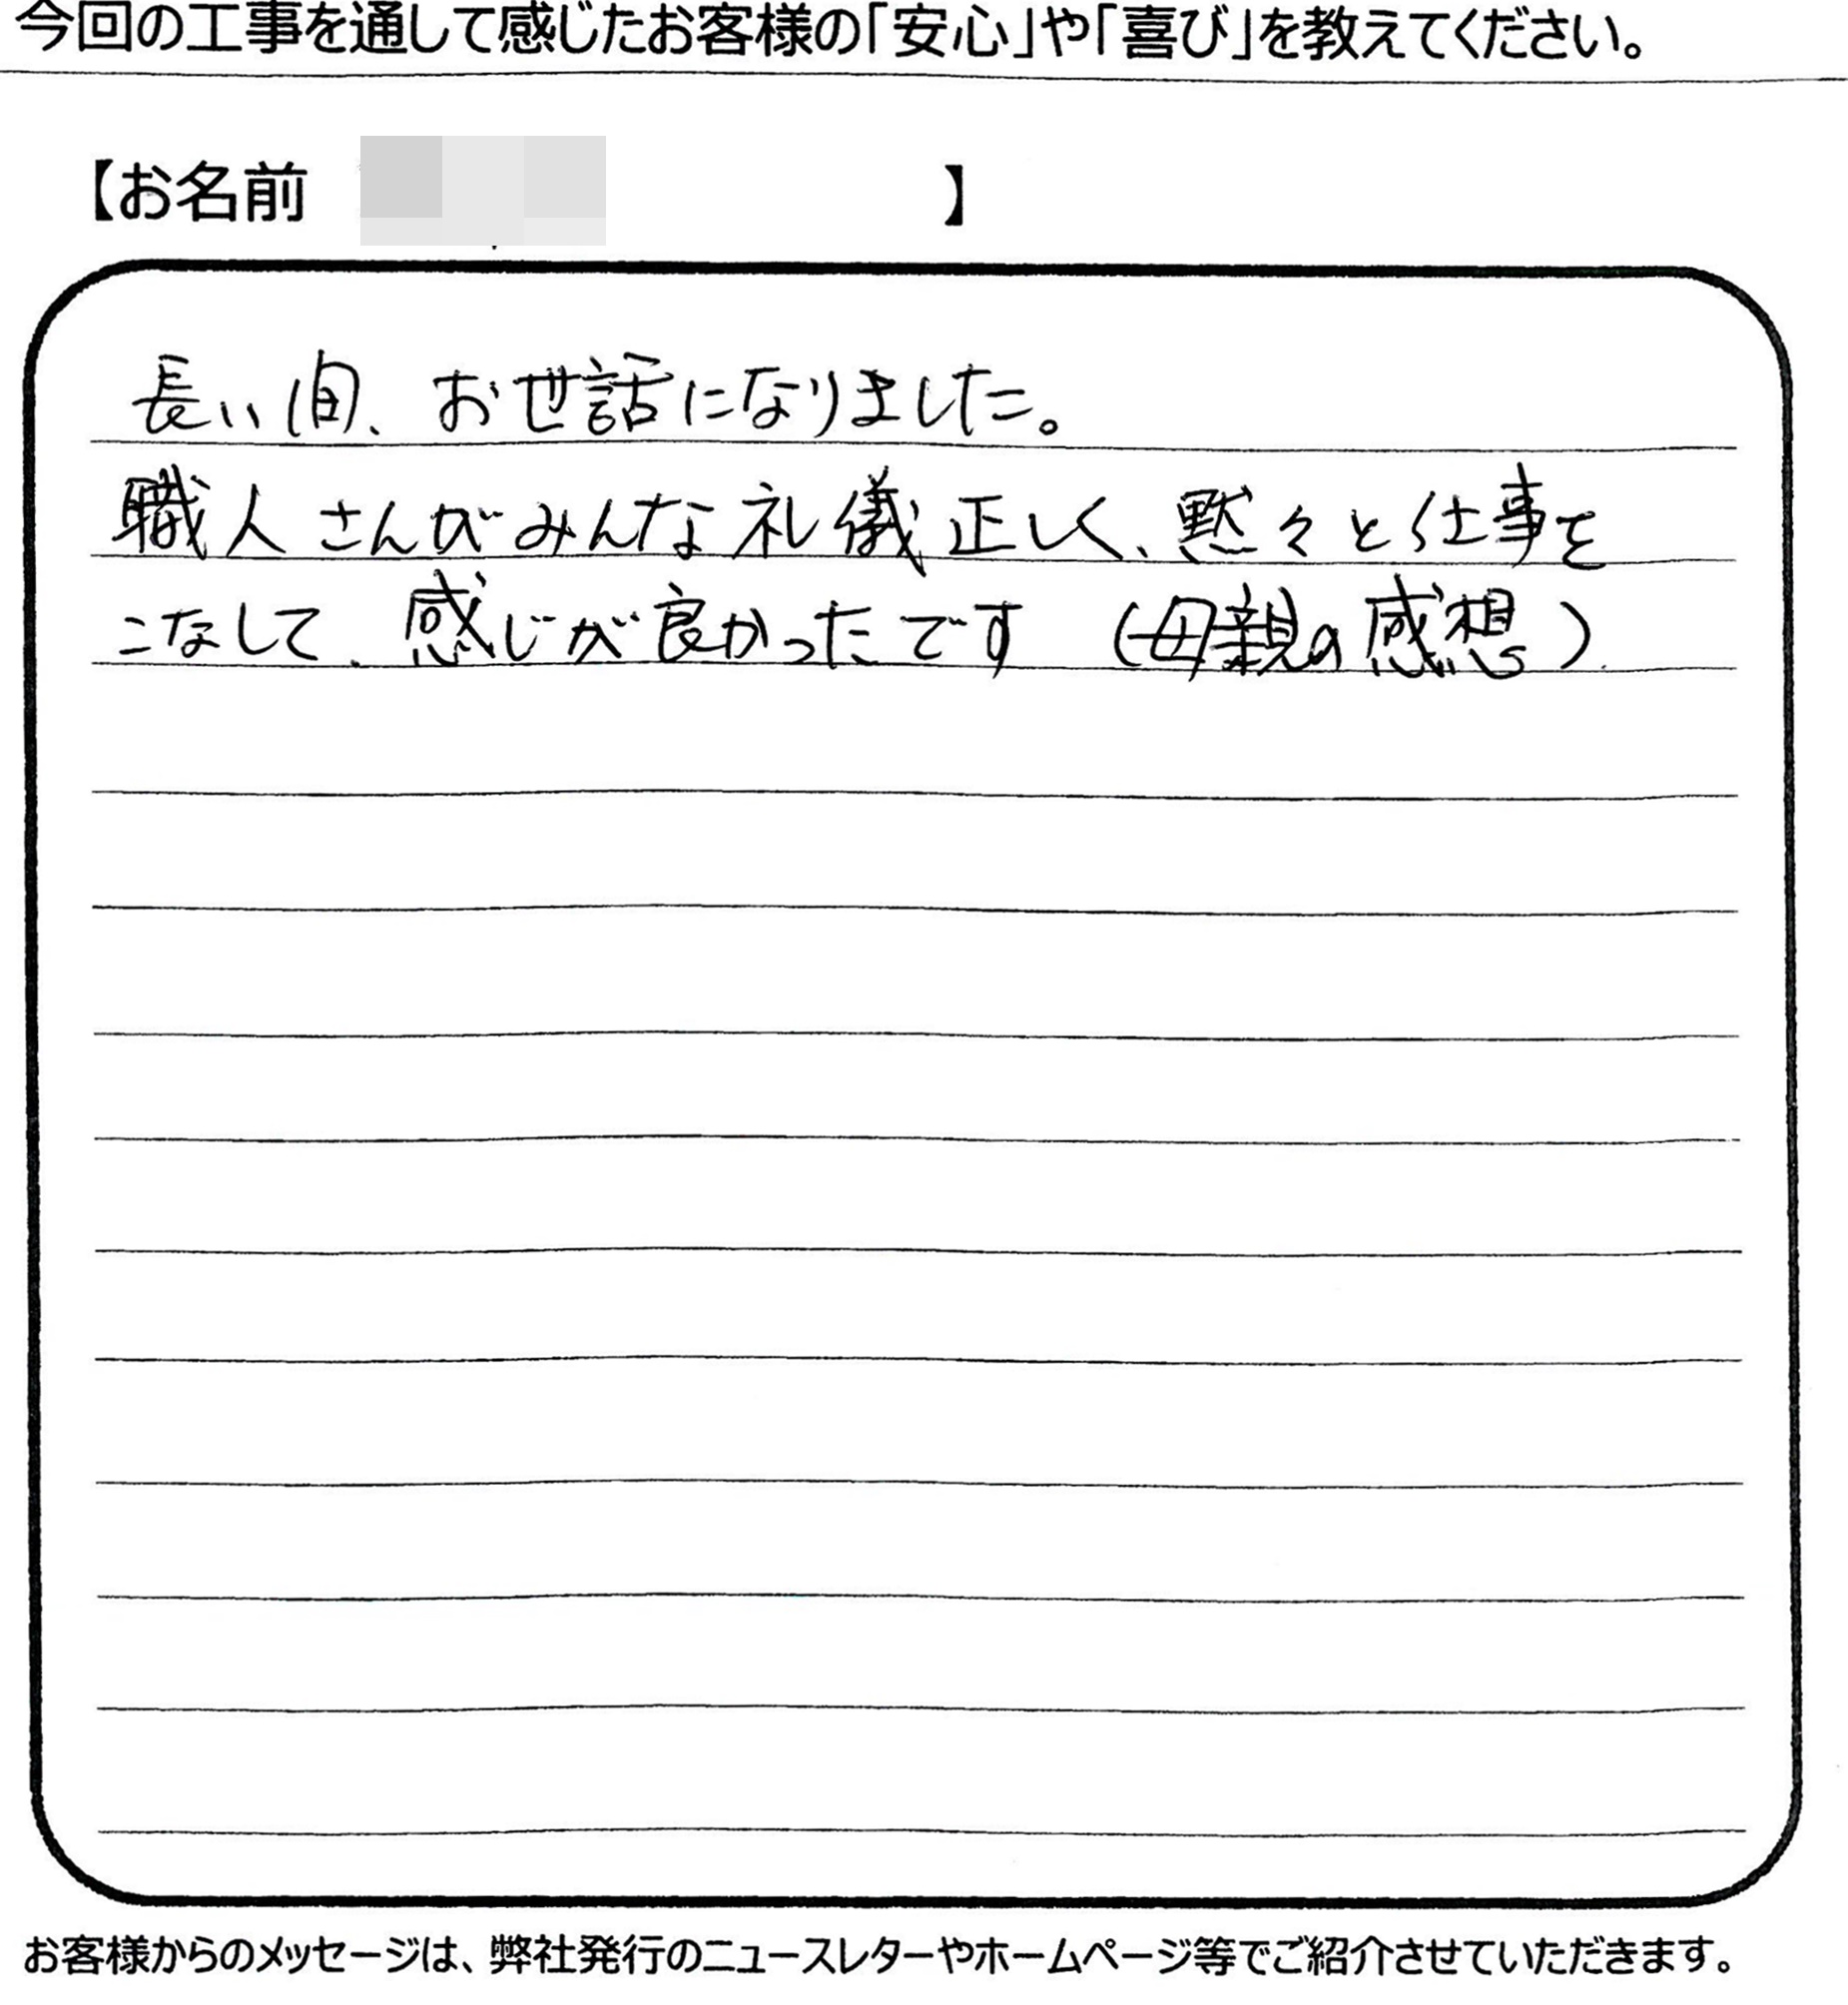 今回の工事を通して感じたお客様の「安心」や「喜び」を教えてください。
【お名前 】
長い間、お世話になりました。
職人さんがみんな礼儀正しく、黙々と仕事を
こなして、感じが良かったです (母親の感想)
お客様からのメッセージは、弊社発行のニュースレターやホームページ等でご紹介させていただきます。